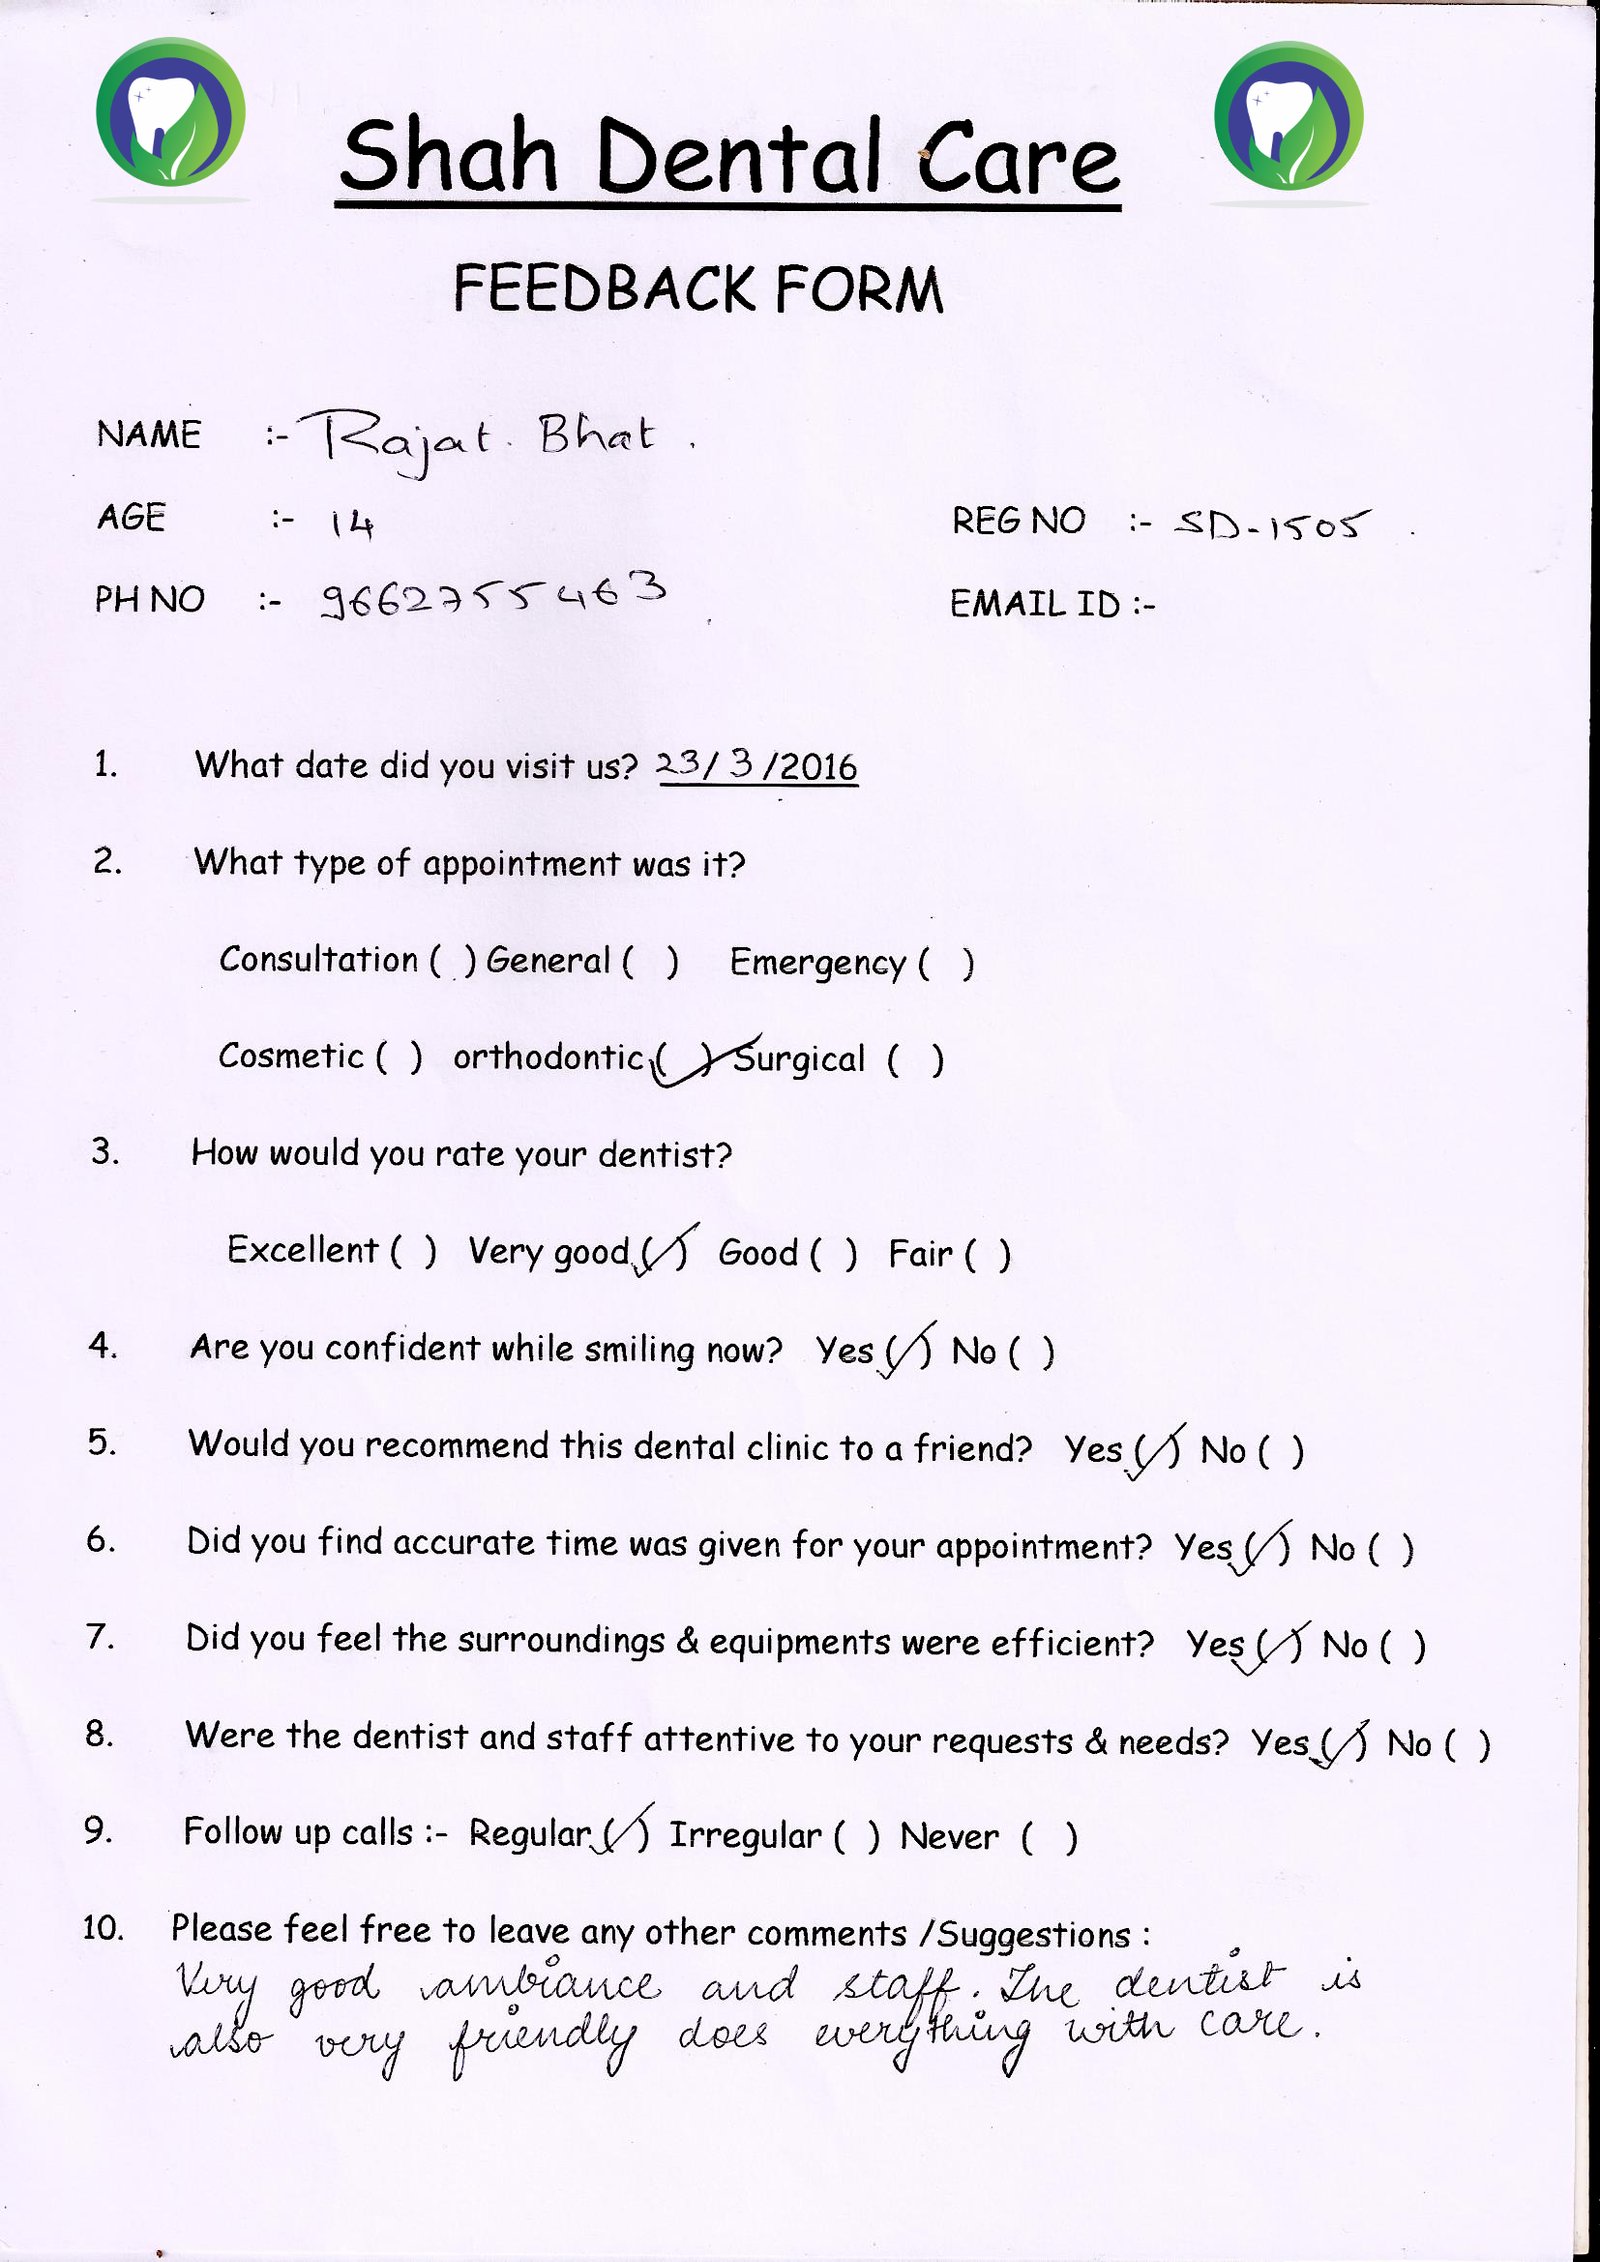 Shah Dental Care
FEEDBACK FORM
NAME :- Rajat. Bhat.
AGE :- 14 REG NO :- SD-1505
PH NO :- 9662755463 EMAIL ID :-
1. What date did you visit us? 23/3/2016
2. What type of appointment was it?
Consultation ( ) General ( ) Emergency ( )
Cosmetic ( ) orthodontic (✓) Surgical ( )
3. How would you rate your dentist?
Excellent ( ) Very good (✓) Good ( ) Fair ( )
4. Are you confident while smiling now? Yes (✓) No ( )
5. Would you recommend this dental clinic to a friend? Yes (✓) No ( )
6. Did you find accurate time was given for your appointment? Yes (✓) No ( )
7. Did you feel the surroundings & equipments were efficient? Yes (✓) No ( )
8. Were the dentist and staff attentive to your requests & needs? Yes (✓) No ( )
9. Follow up calls :- Regular (✓) Irregular ( ) Never ( )
10. Please feel free to leave any other comments /Suggestions :
Very good ambiance and staff. The dentist is
also very friendly does everything with care.